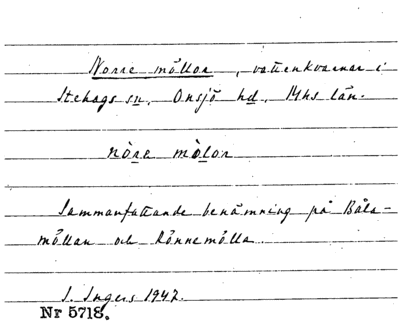 Norre möllor, vattenkvarnar i
Stehags sn, Onsjö hd, Mhs län.
nòra mòlor
Sammanfattande benämning på Båls-
möllan och Rönnemölla.
I. Ingers 1947.
Nr 5718.